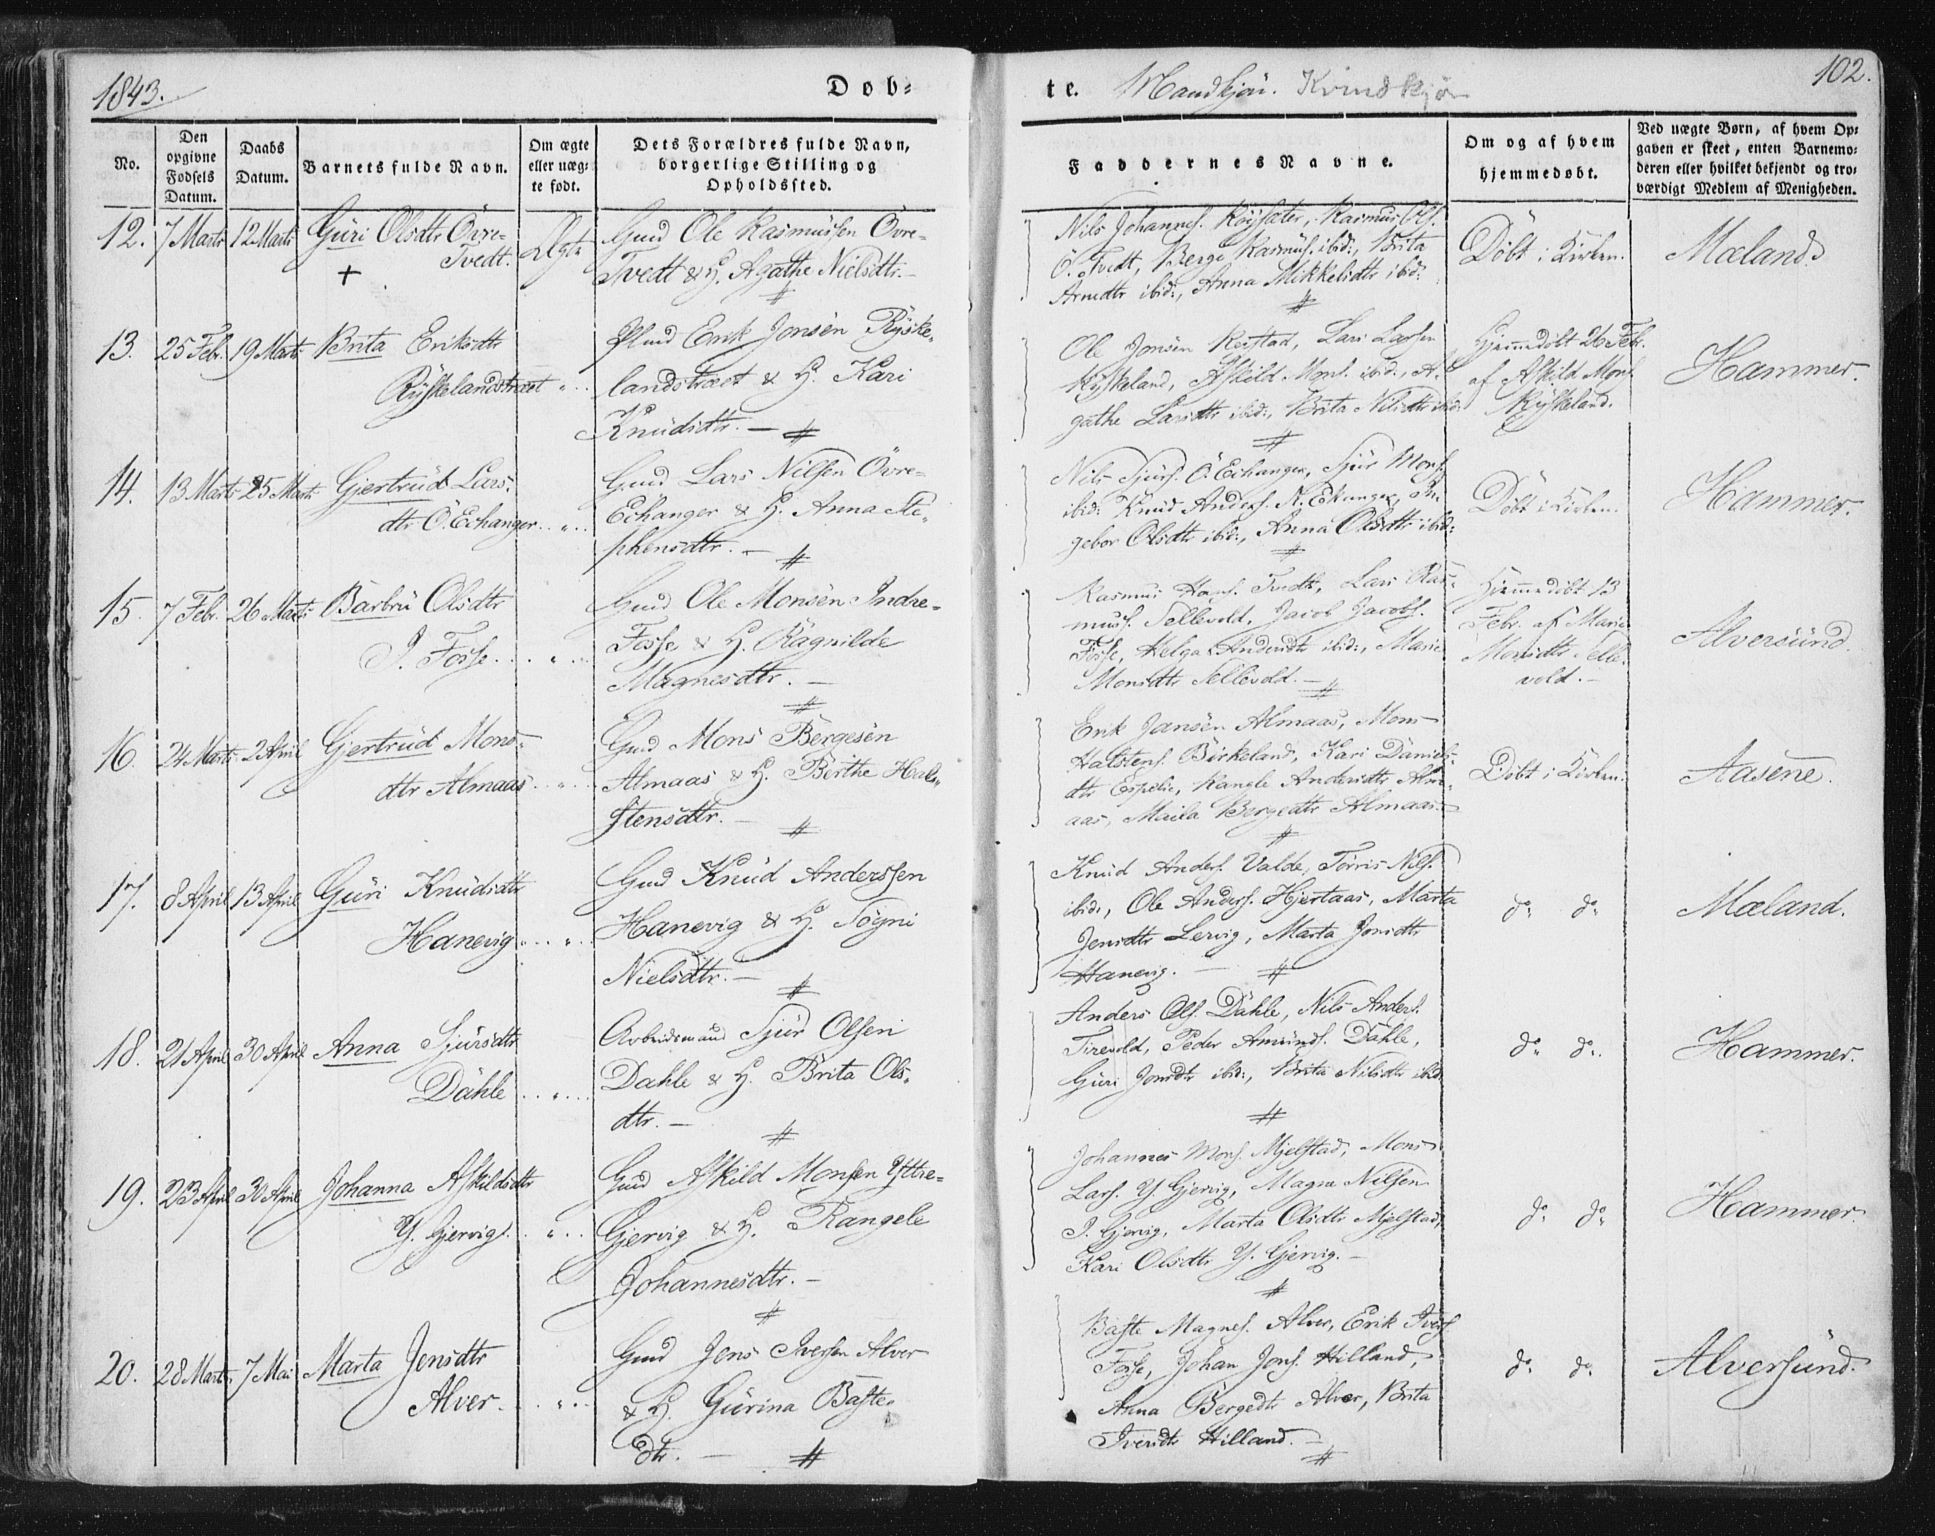 1843.
Döb-
te. Mandkjön. Kvindkjøn
102.
No.
Den opgivne Fødsels Datum.
Daabs Datum.
Barnets fulde Navn.
Om ægte eller uæg-
te født.
Dets Forældres fulde Navn,
borgerlige Stilling og
Opholdssted.
Faddernes Navne.
Om og af hvem
hjemmedøbt.
Ved uægte Børn, af hvem Op-
gaven er skeet, enten Barnemo-
deren eller hvilket bekjendt og tro-
værdigt Medlem af Menigheden.
12. 7 Marts 12 Marts Güri Olsdtr Övre-
Tvedt.
+
Ægte
Gmd Ole Rasmüsen Övre-
Tvedt & H. Agathe Nielsdtr. -
Nils Johannes. Röysæter, Rasmus Ols.
Ö. Tvedt, Berge Rasmüs. ibid:, Brita
Arnedtr ibid:, Anna Mikkelsdtr ibid:
Döbt i Kirken.
Mæland
13. 25 Feb. 19 Marts Brita Eriksdtr
Ryskelandstræet
Plmd Erik Jonsen Ryske-
landstræet & H. Kari
Knüdsdtr. -
Ole Jonsen Restad, Lars Larsen
Ryskeland, Askild Mons. ibid:, A-
gathe Larsdtr ibid:, Brita Nilsdtr ibid:
Hjemmedöbt 26 Febr.
af Askild Mons.
Ryskeland.
Hammer.
14. 13 Marts 25 Marts Gjertrüd Lars-
dtr Ö. Echanger
Gmd Lars Nilsen Övre-
Echanger & H. Anna Ste-
phensdtr. -
Nils Sjürs. Ö. Echanger, Sjür Mons.
ibid: Knüd Anders. N. Echanger, In-
gebor Olsdtr ibid:, Anna Olsdtr ibid:
Döbt i Kirken.
Hammer.
15. 7 Febr. 26 Marts Barbrü Olsdtr
I. Fosse
Gmd Ole Monsen Indre-
Fosse & H. Ragnilde
Magnesdtr. -
Rasmus Hans. Tvedt, Lars Ras-
mus. Sellevold, Jacob Jacobs.
Fosse, Helga Andersdtr ibid:, Marie
Monsdtr Sellevold. -
Hjemmedöbt 13
Febr. af Marie
Monsdtr Selle-
vold. -
Alversünd.
16. 24 Marts 2 April Gjertrüd Mons-
dtr Almaas
Gmd Mons Bergesen
Almaas & H. Berthe Hal-
stensdtr. -
Erik Jansen Almaas, Mons
Halstens. Birkeland, Kari Daniels-
dtr Espelie, Rangle Andersdtr Alm-
aas, Maila Bergedtr Almaas.
Döbt i Kirken.
Aasene.
17. 8 April 13 April Güri Knüdsdtr
Hanevig
Gmd Knüd Anderssen
Hanevig & H. Sögni
Nielsdtr. -
Knüd Anders. Valde, Törris Nils.
ibid:, Ole Anders. Hjertaas, Marta
Jensdtr Lervig, Marta Jonsdtr
Hanevig.
do do
Mæland.
18. 21 April 30 April Anna Sjürsdtr
Dahle
Arbeidsmand Sjür Olsen
Dahle & H. Brita Ols-
dtr. -
Anders Ols. Dahle, Nils Anders.
Tirevold, Peder Amünds. Dahle,
Güri Jonsdtr ibid:, Brita Nilsdtr ibid:
do do.
Hammer.
19. 23 April 30 April Johanna Askildsdtr
Y. Gjervig
Gmd Askild Monsen Yttre-
Gjervig & H. Rangele
Johannesdtr. -
Johannes Mons. Mjelstad, Mons
Lars. Y. Gjervig, Magne Nilsen
I. Gjervig, Marta Olsdtr Mjelstad,
Kari Olsdtr Y. Gjervig. -
do do
Hammer.
20. 28 Marts 7 Mai Marta Jensdtr
Alver.
Gmd Jens Iversen Alver
& H. Gürina Baste-
dtr. -
Baste Magnes. Alver, Erik Ivers.
Fosse, Johan Jons. Hilland,
Anna Bergedtr Alver, Brita
Iversdtr Hilland. -
do do
Alversünd.